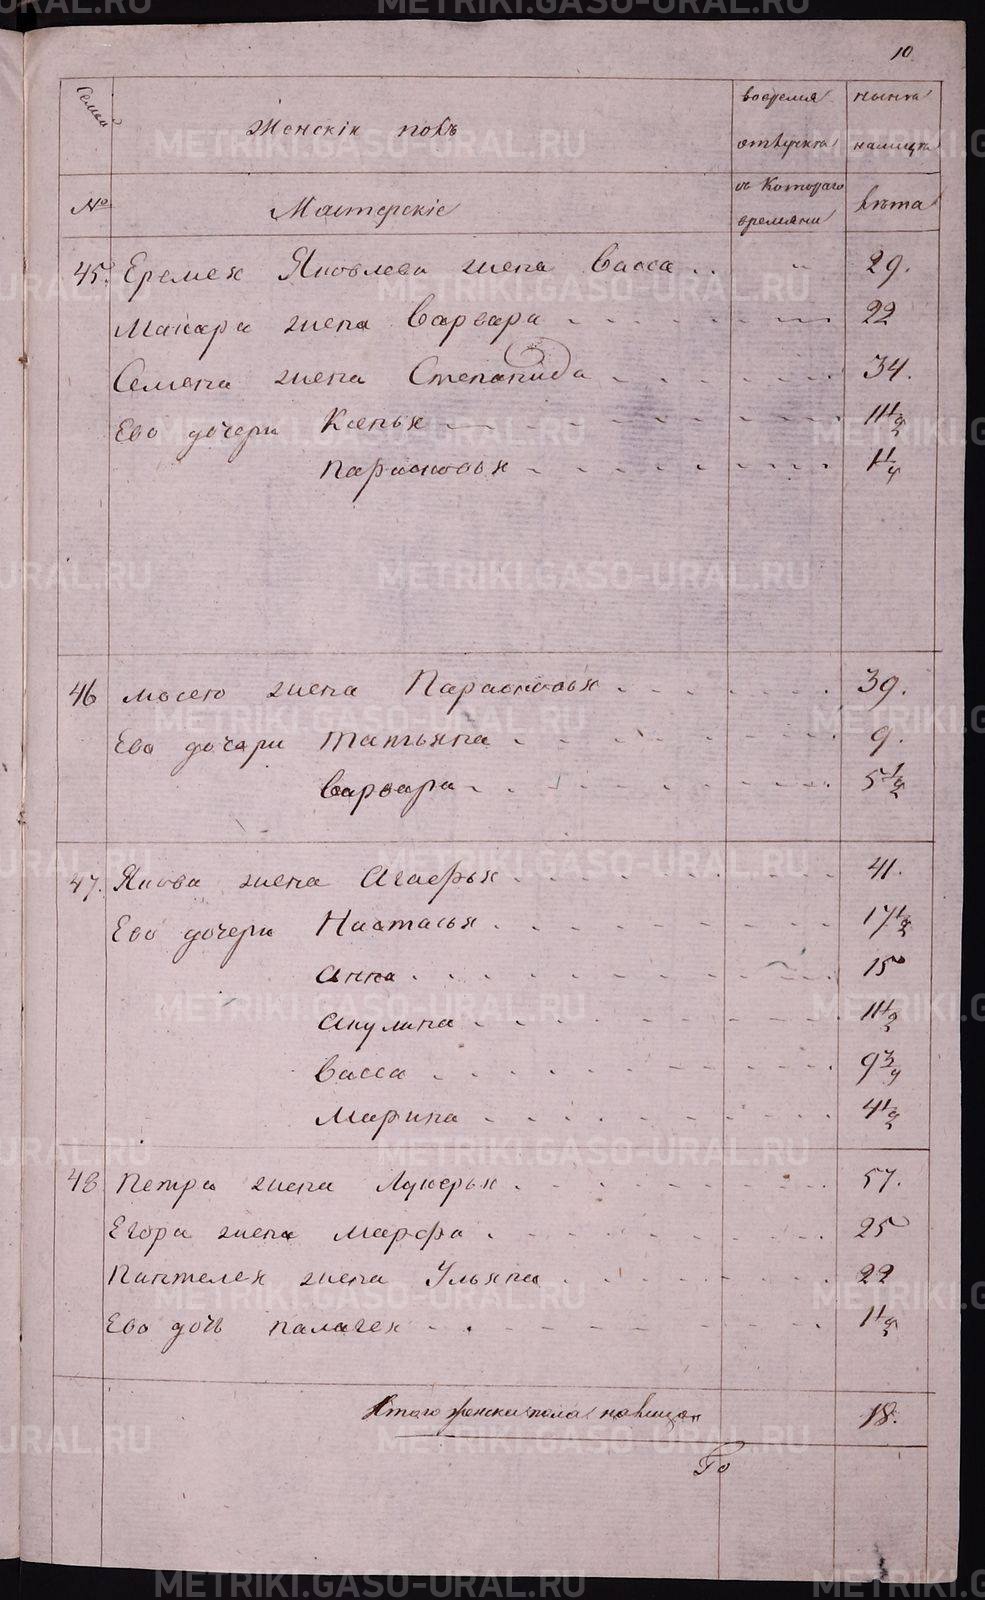 10.
Семьи
Женскiй полъ
вовремя
отлучки
съ котораго
времяни
ныне
налицо
№
Мастерскiе
лета
45. Еремея Яковлева жена Васса 29.
Макара жена Варвара 22
Семена жена Степанида 34.
Ево дочери Ксенья 11 1/2
Парасковья 1 1/4
46 Мосея жена Парасковья 39.
Ево дочери Татьяна 9.
Варвара 5 1/2
47. Якова жена Агафья 41.
Ево дочери Настасья 17 1/2
Анна 15
Акулина 11 1/2
Васса 9 3/4
Марина 4 1/2
48 Петра жена Лукерья 57.
Егора жена Марфа 25
Пантелея жена Ульяна 22
Ево дочь Палагея 1 1/2
Итого женска пола налицо 18.
По
METRIKI.GASO-URAL.RU